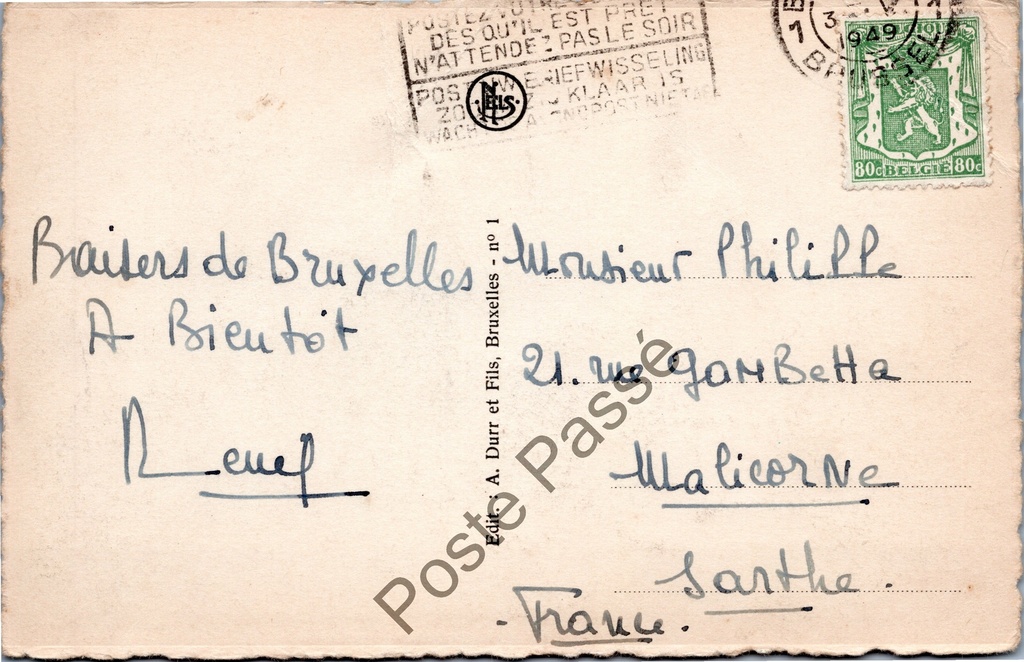 POSTEZ VOTRE
DES QU'IL EST PRET
N'ATTENDEZ PAS LE SOIR
KLAAR IS
NELS
1949
80c BELGIE 80c
Baisers de Bruxelles
A Bientôt
René
Edit. : A. Durr et Fils, Bruxelles - nº 1
Monsieur Philippe
21. rue Gambetta
Malicorne
Sarthe.
- France.
Poste Passé